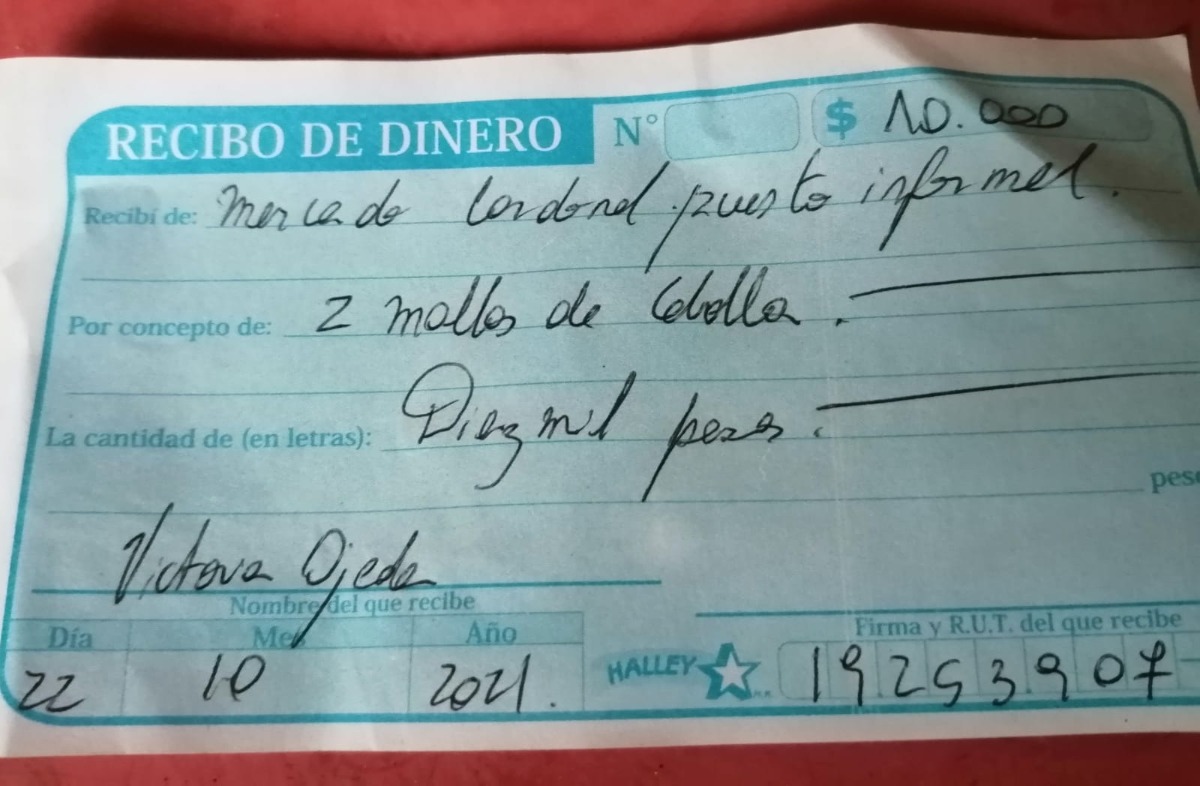 RECIBO DE DINERO N° $ 10.000
Recibí de: Mercado Cardonal puesto informal.
Por concepto de: 2 mallas de Cebolla.
La cantidad de (en letras): Diez mil pesos.
peso
Victoria Ojeda
Nombre del que recibe
Firma y R.U.T. del que recibe
Día Mes Año
HALLEY
22 10 2021. 19253907